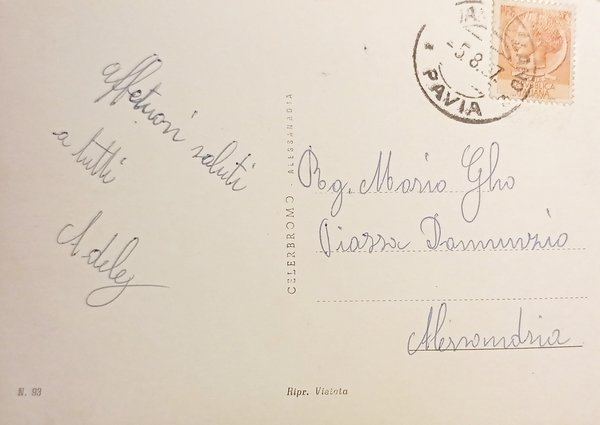 affettuosi saluti
a tutti
Adele
CELERBROMO - ALESSANDRIA
-5.8.57
PAVIA
Rg. Mario Gho
Piazza Dannunzio
Alessandria
N. 93
Ripr. Vietata